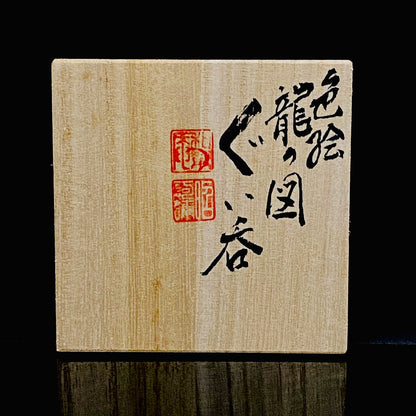 色絵
龍の図
ぐい呑